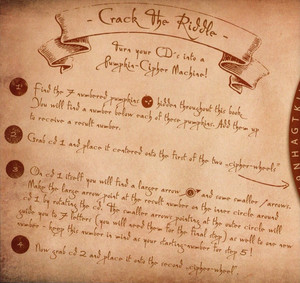 - Crack The Riddle -
Turn your CD's into a
Pumpkin-Cipher Machine!
Find the 7 numbered pumpkins hidden throughout this book.
You will find a number below each of these pumpkins. Add them up
to receive a result number.
Grab cd 1 and place it centered onto the first of the two "cipher-wheels"
On cd 1 itself you will find a larger arrow and some smaller arrows.
Make the large arrow point at the result number on the inner circle around
cd 1 by rotating the cd. The smaller arrows pointing at the outer circle will
guide you to 7 letters (you will need them for the final step) as well to one new
number - keep this number in mind as your starting-number for step 5!
4 Now grab cd 2 and place it onto the second "cipher-wheel".
NHAGTA